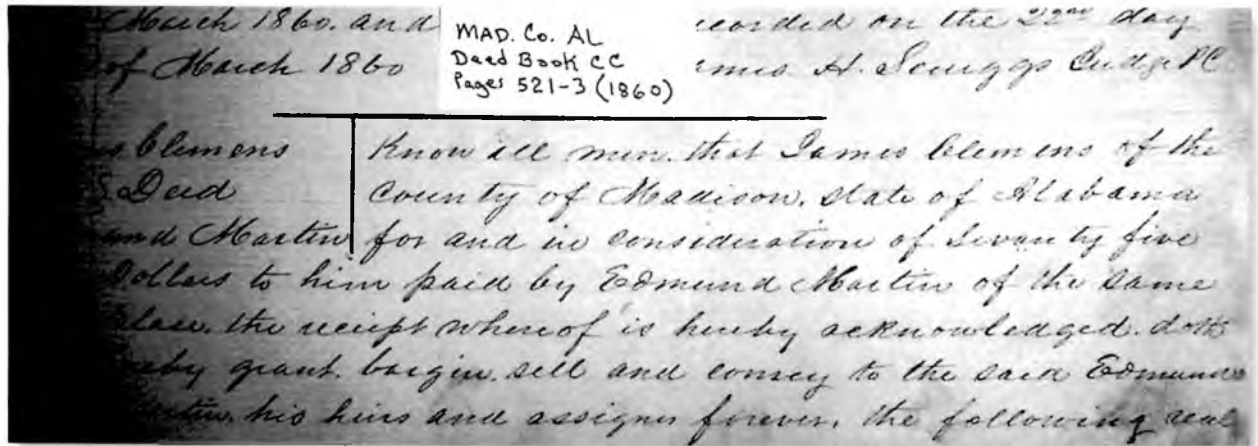 March 1860. and
MAD. Co. AL
Deed Book CC
Pages 521-3 (1860)
corded on the 22nd day
of March 1860
ames H. Scruggs Judge PC
s Clemens
S. Deed
und Martin
Know all men. that James Clemens of the
County of Madison. State of Alabama
for and in consideration of Seventy five
Dollars to him paid by Edmund Martin of the same
place. the receipt whereof is hereby acknowledged. doth
reby grant. bargin. sell and convey to the said Edmund
Martin, his heirs and assigns forever, the following real